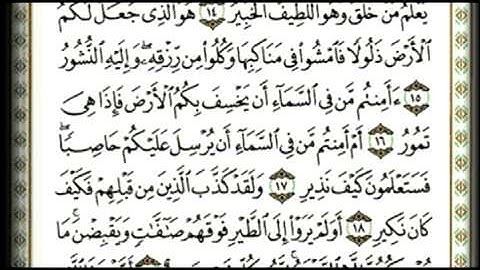 يَعْلَمُ مَنْ خَلَقَ وَهُوَ ٱللَّطِيفُ ٱلْخَبِيرُ ١٤ هُوَ ٱلَّذِى جَعَلَ لَكُمُ
ٱلْأَرْضَ ذَلُولًا فَٱمْشُوا۟ فِى مَنَاكِبِهَا وَكُلُوا۟ مِن رِّزْقِهِۦ ۖ وَإِلَيْهِ ٱلنُّشُورُ
١٥ ءَأَمِنتُم مَّن فِى ٱلسَّمَآءِ أَن يَخْسِفَ بِكُمُ ٱلْأَرْضَ فَإِذَا هِىَ
تَمُورُ ١٦ أَمْ أَمِنتُم مَّن فِى ٱلسَّمَآءِ أَن يُرْسِلَ عَلَيْكُمْ حَاصِبًا ۖ
فَسَتَعْلَمُونَ كَيْفَ نَذِيرِ ١٧ وَلَقَدْ كَذَّبَ ٱلَّذِينَ مِن قَبْلِهِمْ فَكَيْفَ
كَانَ نَكِيرِ ١٨ أَوَلَمْ يَرَوْا۟ إِلَى ٱلطَّيْرِ فَوْقَهُمْ صَٰٓفَّٰتٍ وَيَقْبِضْنَ ۚ مَا